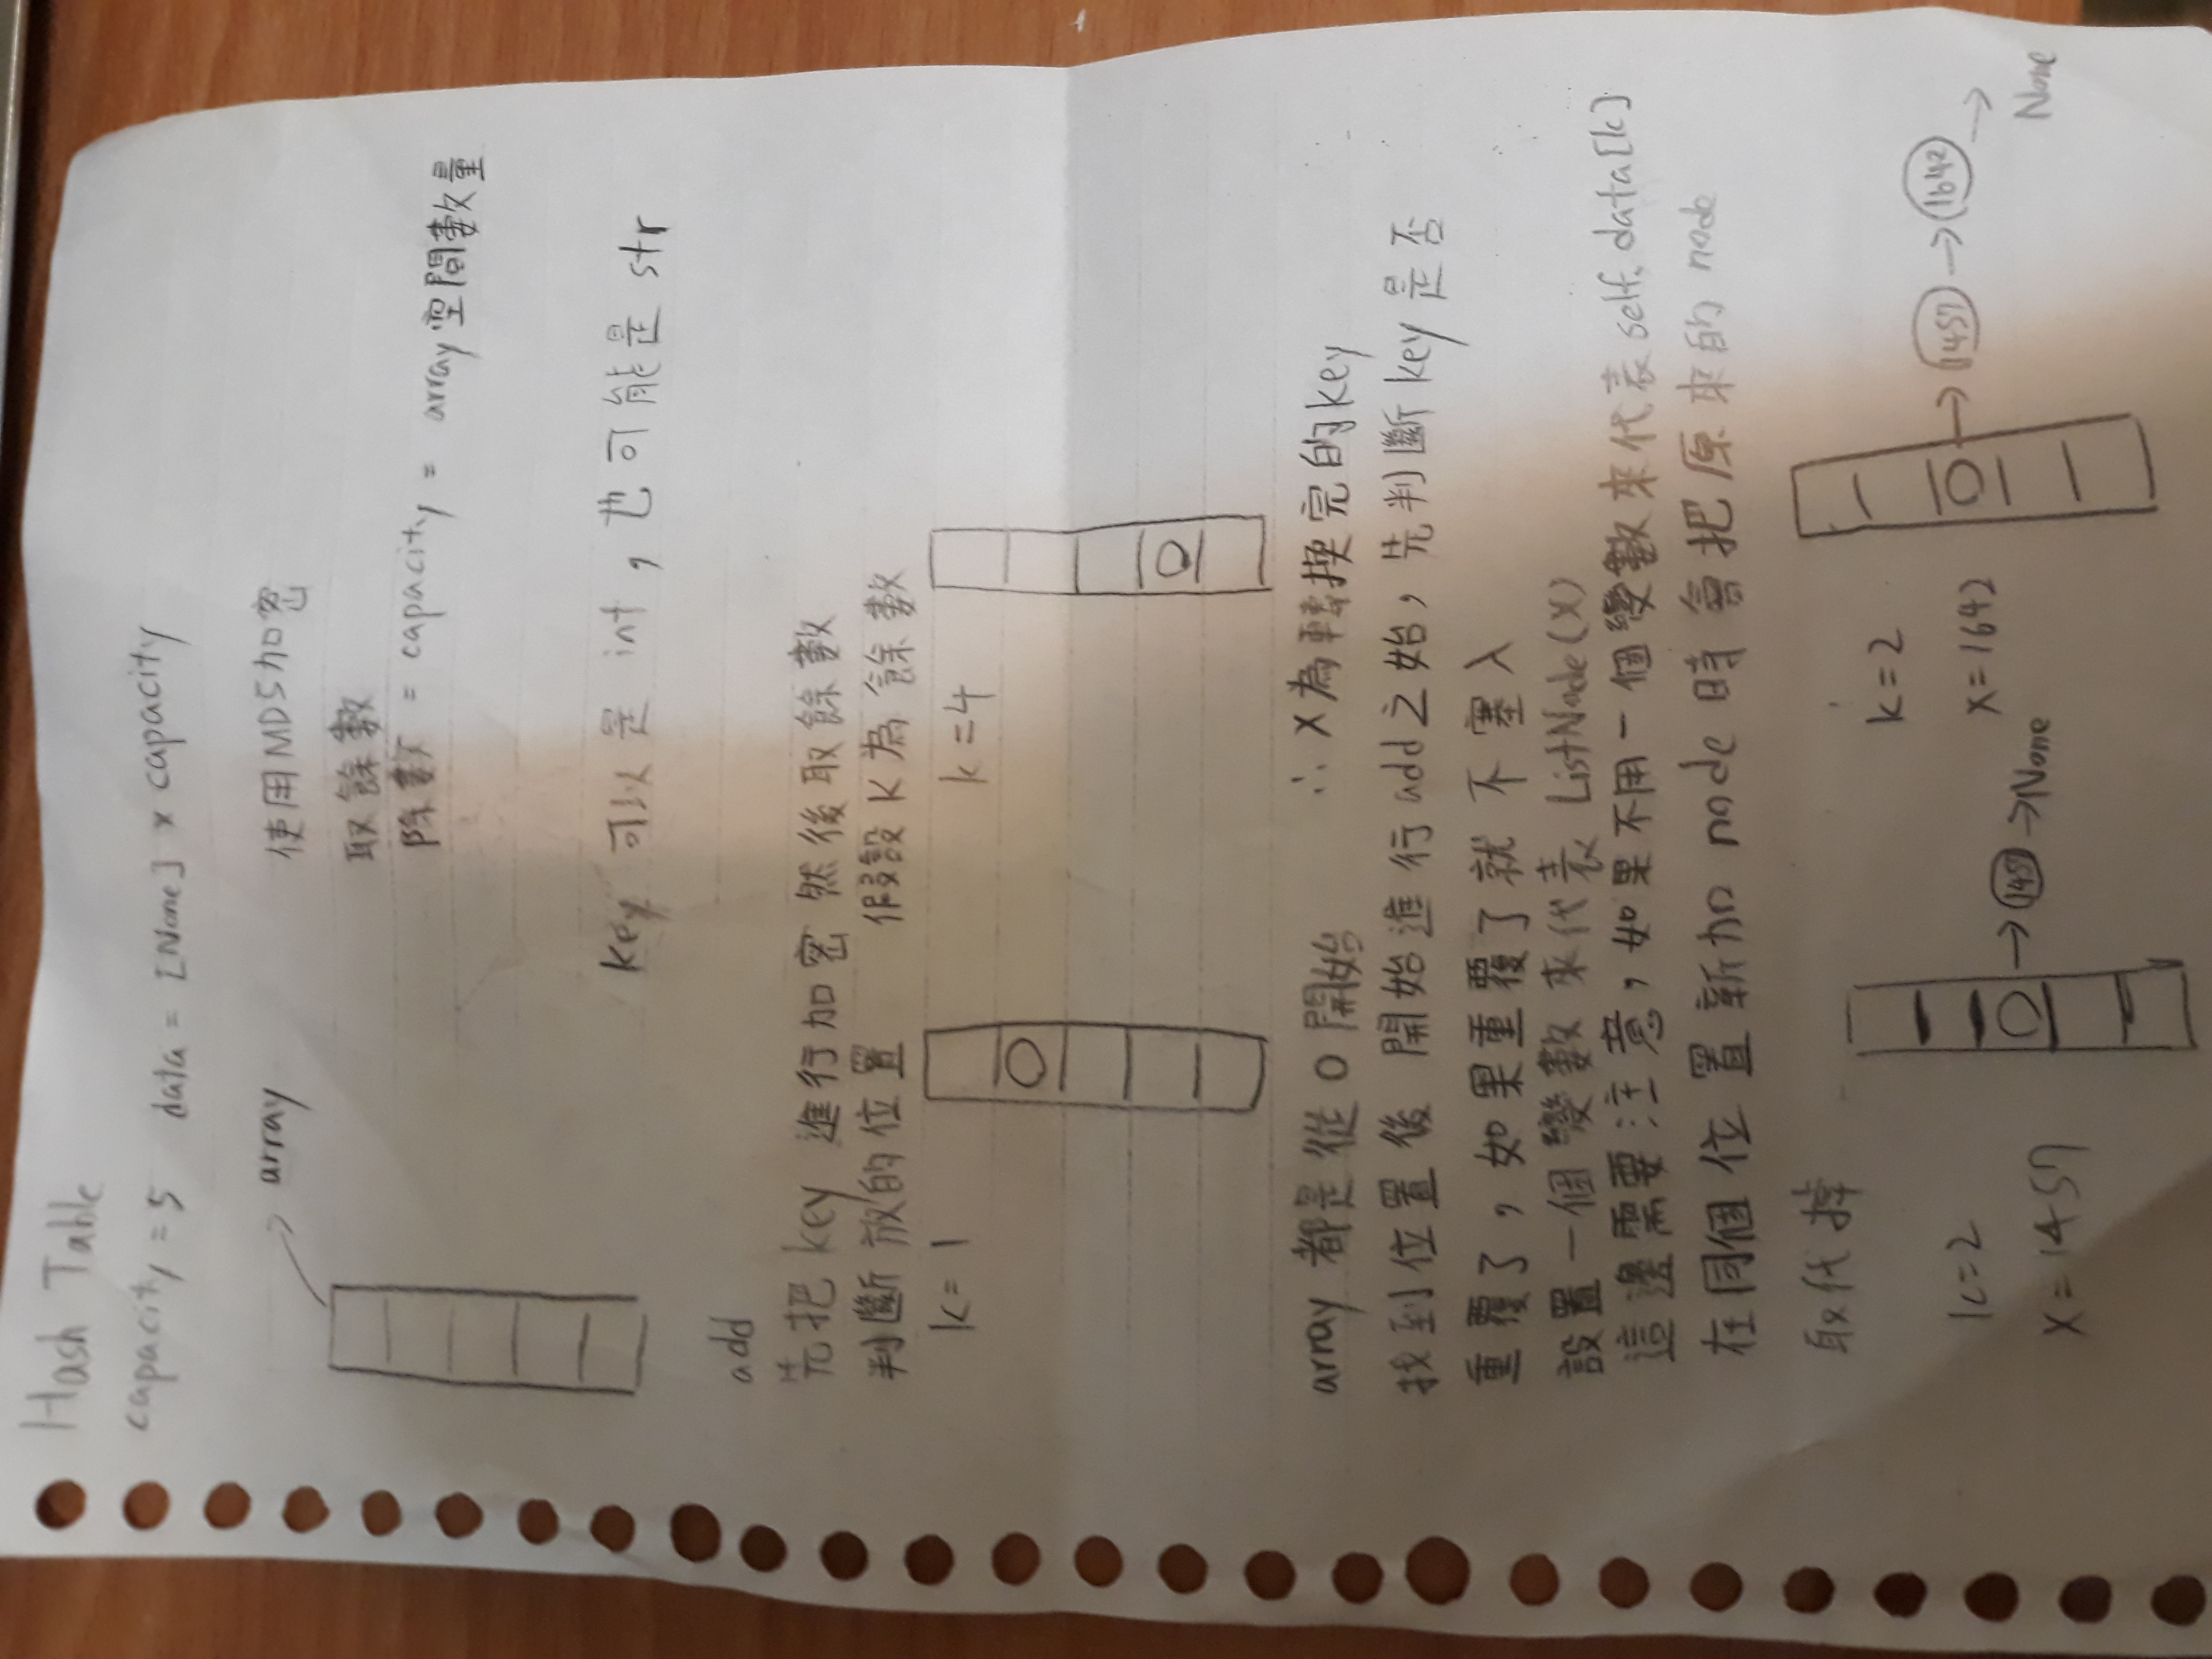 Hash Table
capacity = 5 data = [None] × capacity
array
使用MD5加密
取餘數
除數 = capacity = array空間數量
key 可以是 int，也可能是 str
add
先把key 進行加密然後取餘數
判斷放的位置 假設K為餘數
k=1 k=4
array 都是從 0 開始 ∴ X為轉換完的key
找到位置後 開始進行add之始，先判斷key是否
重覆了，如果重覆了就不塞入
設置一個變數來代表 ListNode(X)
這邊需要注意，如果不用一個變數來代表self.data[k]
在同個位置新加 node 時會把原來的 node
取代掉
k=2
x=1457
1457 → None
k=2
x=1642
→ 1457 → 1642 → None